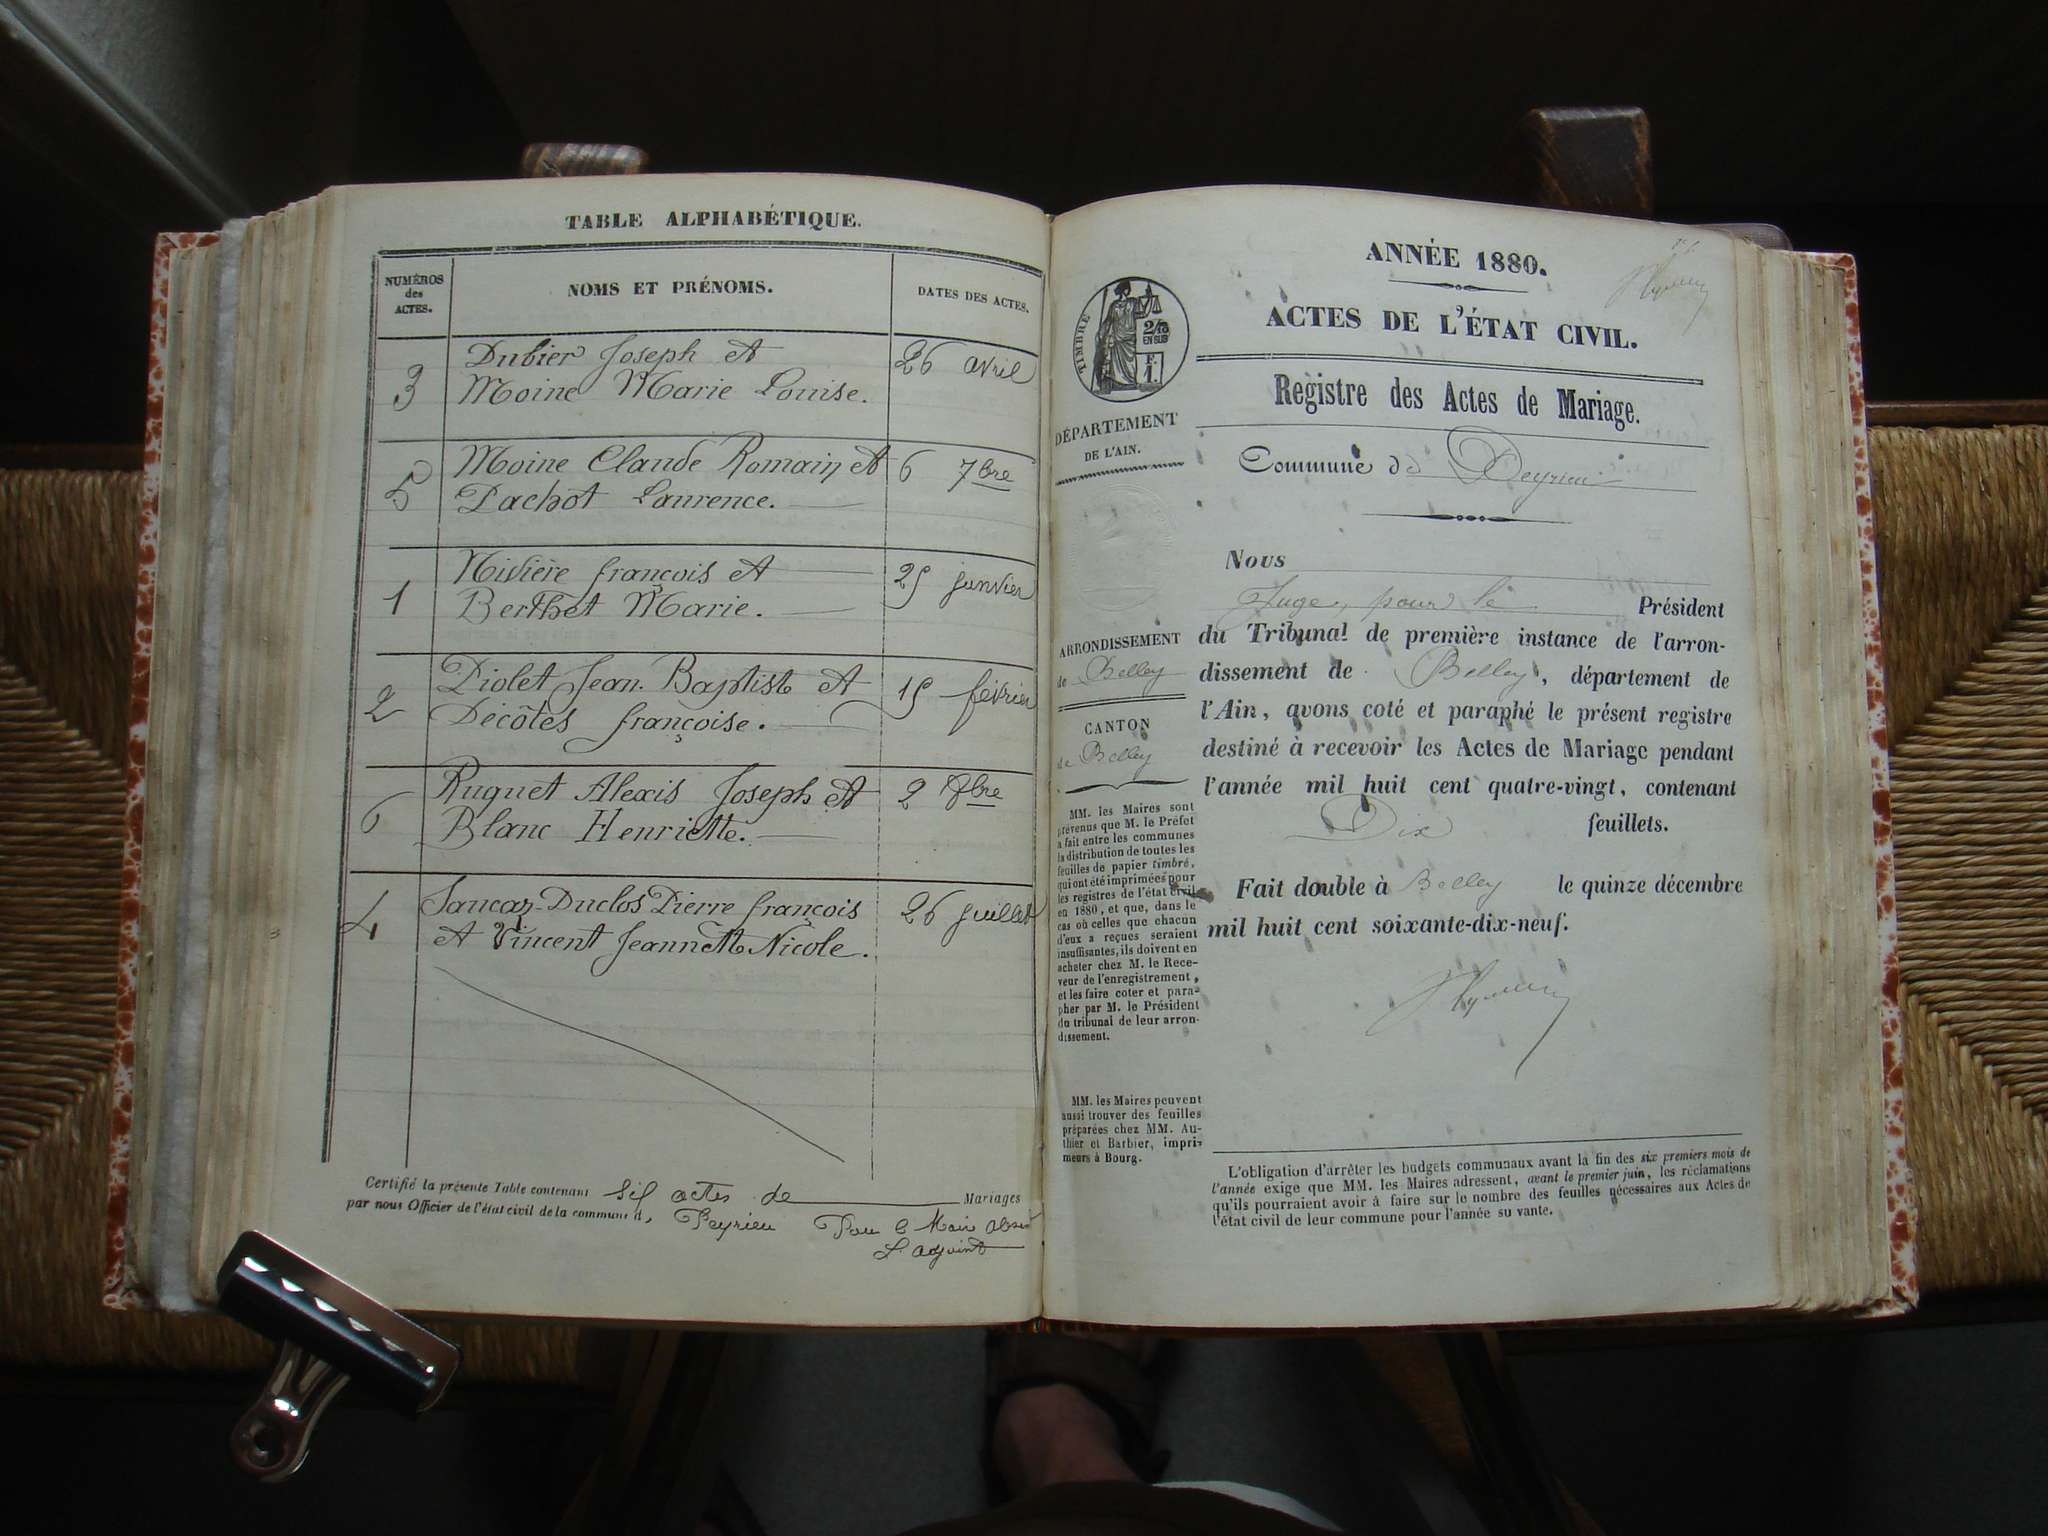 TABLE ALPHABÉTIQUE.
NUMÉROS
des
ACTES.
NOMS ET PRÉNOMS.
DATES DES ACTES.
3
Dubier Joseph et
Moine Marie Louise.
26 avril
5
Moine Claude Romain et
Pachot Laurence.
6 7bre
1
Nivière françois et
Berthet Marie.
25 janvier
2
Piolet Jean Baptiste et
Décôtes françoise.
15 février
6
Ruguet Alexis Joseph et
Blanc Henriette.
2 8bre
4
Sancaz-Duclos Pierre françois
et Vincent Jeannette Nicole.
26 juillet
Certifié la présente Table contenant six actes de Mariages
par nous Officier de l'état civil de la commune d. Peyrieu Pour le Maire absent
L'adjoint
ANNÉE 1880.
ACTES DE L'ÉTAT CIVIL.
Registre des Actes de Mariage.
Commune de Peyrieu
TIMBRE
2/10
EN SUS
F.
1.
DÉPARTEMENT
DE L'AIN.
ARRONDISSEMENT
de Belley
CANTON
de Belley
MM. les Maires sont
prévenus que M. le Préfet
a fait entre les communes
la distribution de toutes les
feuilles de papier timbré,
qui ont été imprimées pour
les registres de l'état civil
en 1880, et que, dans le
cas où celles que chacun
d'eux a reçues seraient
insuffisantes, ils doivent en
acheter chez M. le Rece-
veur de l'enregistrement,
et les faire coter et para-
pher par M. le Président
du tribunal de leur arron-
dissement.
MM. les Maires peuvent
aussi trouver des feuilles
préparées chez MM. Au-
thier et Barbier, impri-
meurs à Bourg.
Nous
Juge, pour le Président
du Tribunal de première instance de l'arron-
dissement de Belley, département de
l'Ain, avons coté et paraphé le présent registre
destiné à recevoir les Actes de Mariage pendant
l'année mil huit cent quatre-vingt, contenant
Dix feuillets.
Fait double à Belley le quinze décembre
mil huit cent soixante-dix-neuf.
L'obligation d'arrêter les budgets communaux avant la fin des six premiers mois de
l'année exige que MM. les Maires adressent, avant le premier juin, les réclamations
qu'ils pourraient avoir à faire sur le nombre des feuilles nécessaires aux Actes de
l'état civil de leur commune pour l'année su vante.